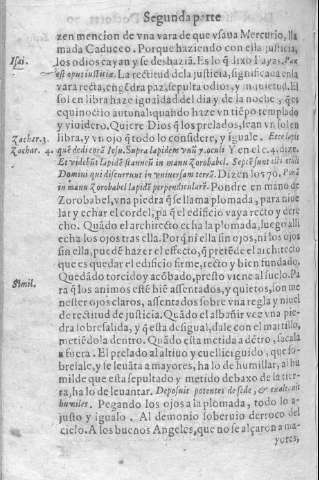 Segunda parte
zen mencion de vna vara de que vsaua Mercurio, lla
mada Caduceo. Porque haziendo con ella justicia,
Isai.
los odios cayan y se deshaziā. Es lo q̄ dixo Isayas. Pax
est opus iustitiæ. La rectitud de la justicia, significada en la
vara recta, engēdra paz, sepulta odios, y inquietud. El
sol en libra haze igualdad del dia y de la noche, y es
equinoctio autonal: quando haze vn tiēpo templado
y viuidero. Quiere Dios q̄ los prelados, sean vn sol en
libra, y vn ojo q̄ todo lo considere, y iguale. Ecce lapis
Zachar. 3.
Zachar. 4.
quē dedi corā Iesu. Supra lapidem vnū 7. oculi Y en el c. 4. dize.
Et videbūt lapidē stanneū in manu Zorobabel. Septē sunt isti oculi
Domini qui discurrunt in vniuersam terrā. Dizen los 70.
in manu Zorobabel lapidē perpendicularē. Pondre en mano de
Zorobabel, vna piedra q̄ se llama plomada, para niue
lar y echar el cordel, pa q̄ el edificio vaya recto y dere
cho. Quādo el architecto echa la plomada, luego alli
echa los ojos tras ella. Porq̄ ni ella sin ojos, ni los ojos
sin ella, puedē hazer el effecto, q̄ pretēde el architecto
que es quedar el edificio firme, recto y bien fundado.
Quedādo torcido y acōbado, presto viene al suelo. Pa
Simil.
ra q̄ los animos estē biē assentados, y quietos, son me
nester ojos claros, assentados sobre vna regla y niuel
de rectitud de justicia. Quādo el albañir vez vna pie
dra sobresalida, y q̄ esta desigual, dale con el martillo,
metiēdola dentro. Quādo esta metida a dētro, sacala
a fuera. El prelado al altiuo y cuellierguido, que so-
bresale, y se leuāta a mayores, ha lo de humillar, al hu
milde que esta sepultado y metido debaxo de la tier-
ra, ha lo de leuantar. Deposuit potentes de sede, & exaltauit
humiles. Pegando los ojos a la plomada, todo lo a-
justo y igualo. Al demonio soberuio derroco del
cielo. A los buenos Angeles, que no se alçaron a ma-
yores,